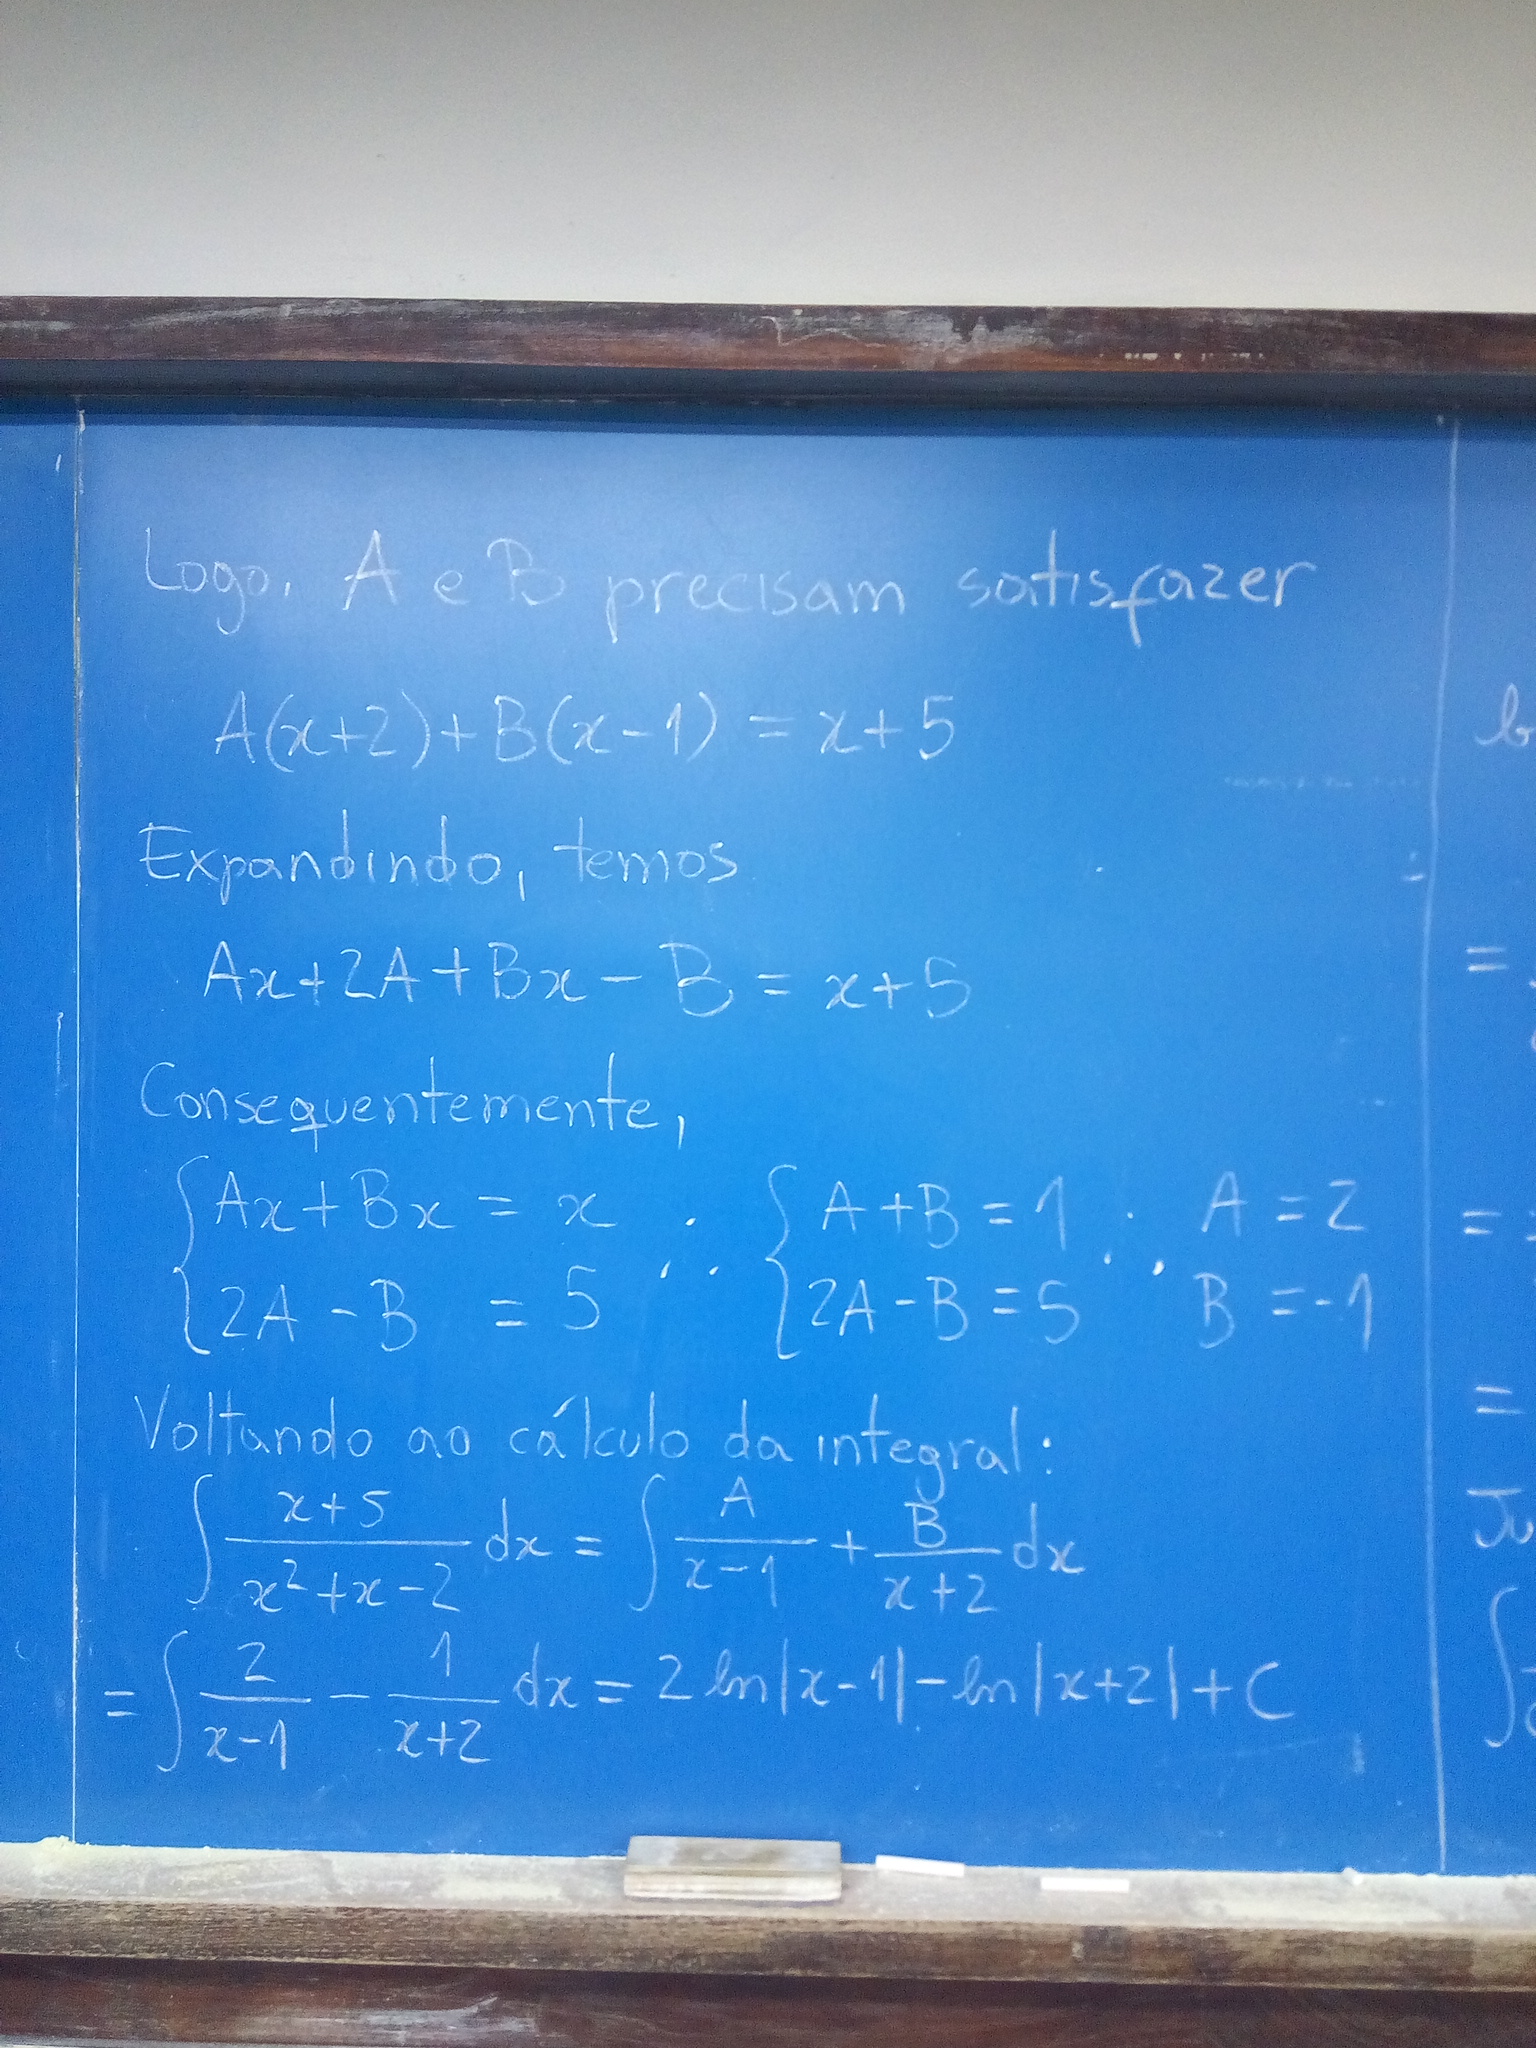 Logo, A e B precisam satisfazer
A(x+2)+B(x-1) = x+5
Expandindo, temos
Ax+2A+Bx-B = x+5
Consequentemente,
{Ax+Bx = x ∴ {A+B = 1 ∴ A = 2
{2A-B = 5 {2A-B = 5 B = -1
Voltando ao cálculo da integral:
∫ (x+5)/(x²+x-2) dx = ∫ A/(x-1) + B/(x+2) dx
= ∫ 2/(x-1) - 1/(x+2) dx = 2 ln|x-1| - ln|x+2| + C